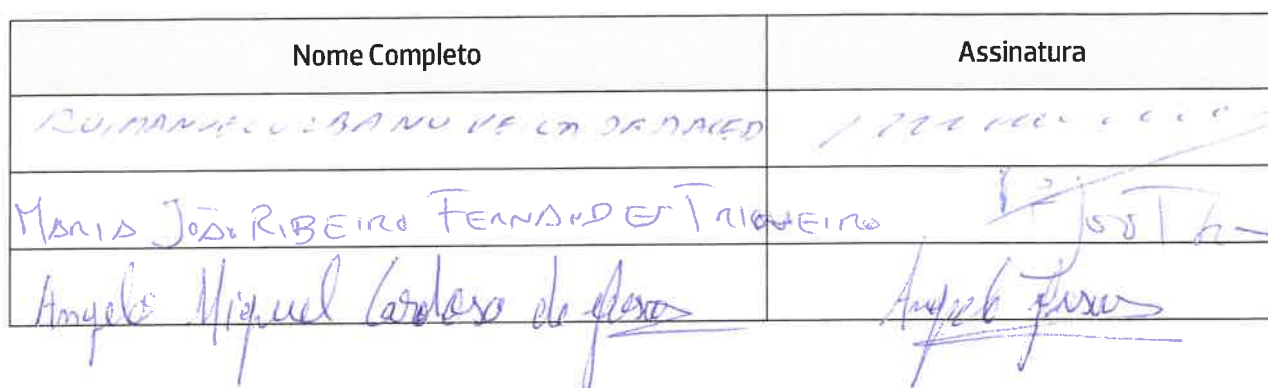 Nome Completo Assinatura
RUI MANUEL URBANO
MARIA JOÃO RIBEIRO FERNANDES TRIGUEIRO
Angelo Miguel Cardoso de Jesus Angelo Jesus